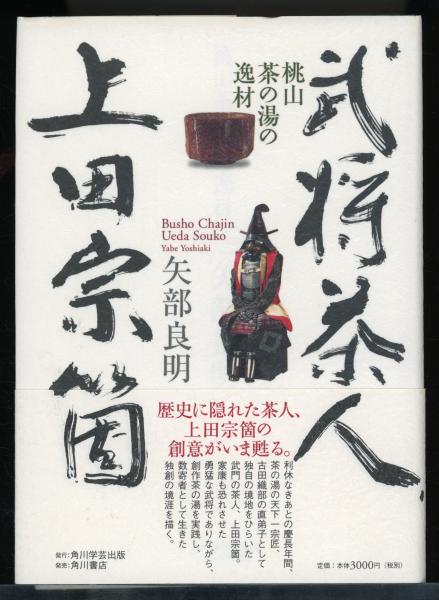 武将茶人
上田宗箇
桃山
茶の湯の
逸材
Busho Chajin
Ueda Souko
Yabe Yoshiaki
矢部良明
歴史に隠れた茶人、
上田宗箇の
創意がいま甦る。
利休なきあとの慶長年間、
茶の湯の天下一宗匠、
古田織部の直弟子として
独自の境地をひらいた
武門の茶人、上田宗箇。
家康も恐れさせた
勇猛な武将でありながら、
創作茶の湯を実践し、
数寄者として生きた
独創の境涯を描く。
発行:角川学芸出版
発売:角川書店
定価:本体3000円(税別)